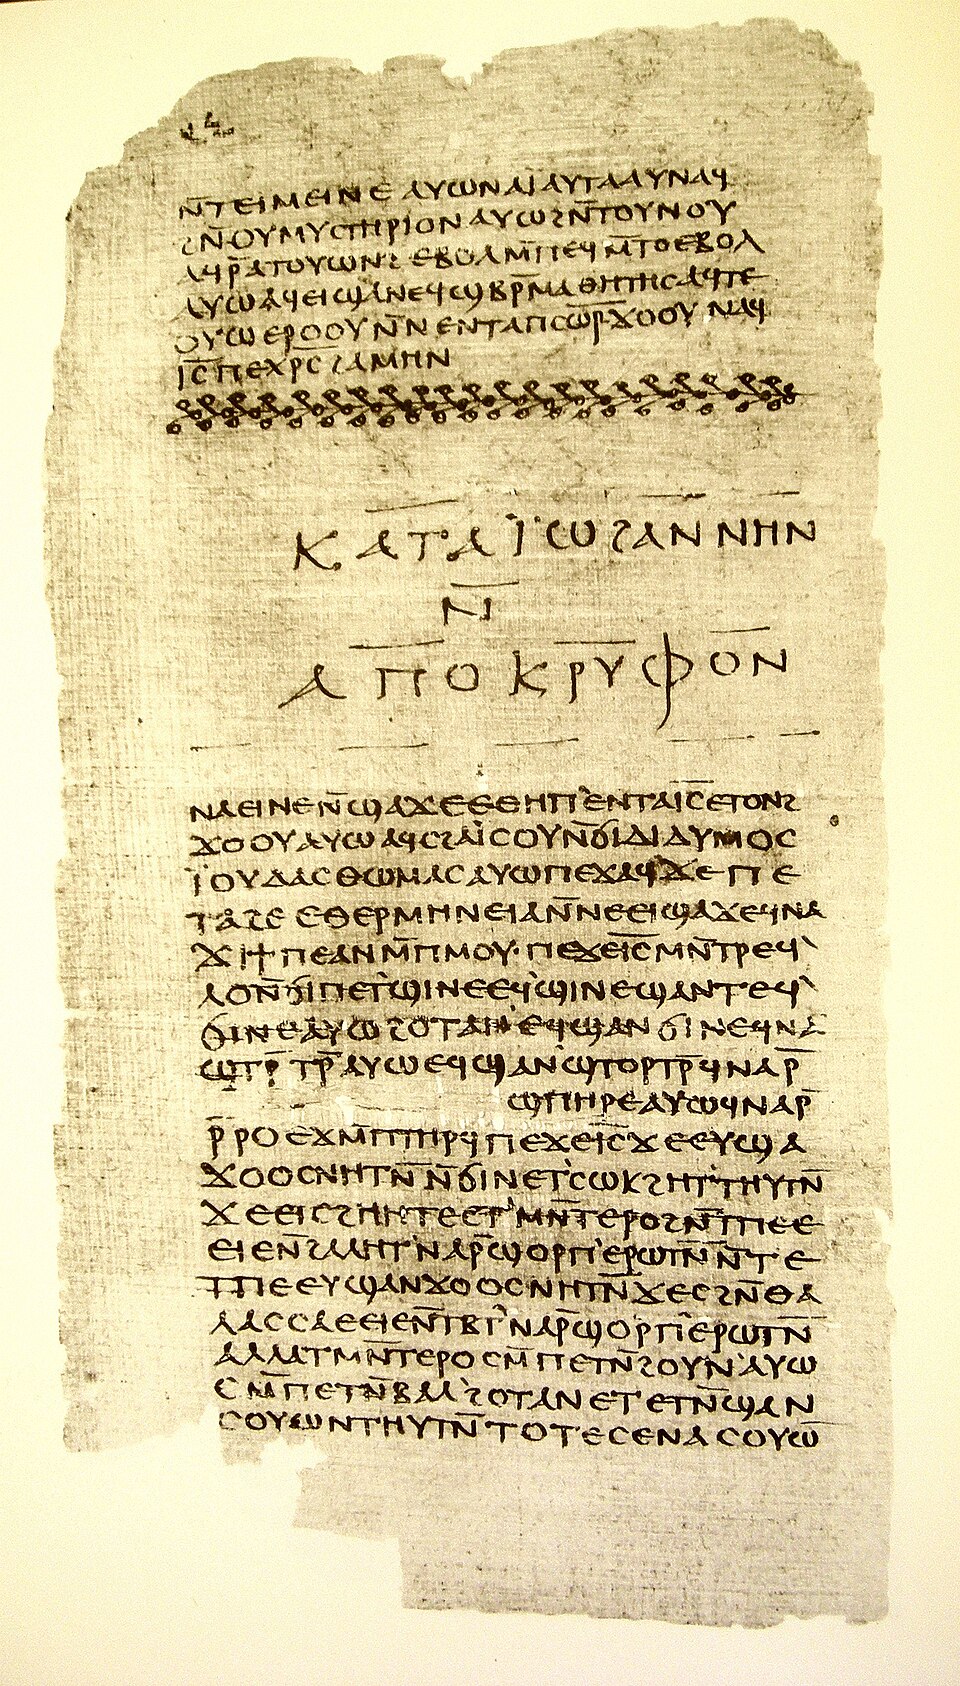 ⲛ̄ⲧⲉⲓⲙⲉⲓⲛⲉ ⲁⲩⲱⲛⲁⲓ̈ⲁⲩⲧⲁⲁⲩⲛⲁϥ
ϩⲛ̄ⲟⲩⲙⲩⲥⲧⲏⲣⲓⲟⲛⲁⲩⲱϩⲛ̄ⲧⲟⲩⲛⲟⲩ
ⲁϥⲣ̄ⲁⲧⲟⲩⲱⲛϩ ⲉⲃⲟⲗⲙ̄ⲡⲉϥⲙ̄ⲧⲟⲉⲃⲟⲗ
ⲁⲩⲱⲁϥⲉⲓϣⲁⲛⲉϥϣⲃⲣ̄ⲙⲁⲑⲏⲧⲏⲥⲁϥⲧⲉ
ⲟⲩⲱ ⲉⲣⲟⲟⲩ ⲛ̄ⲛⲉⲛⲧⲁⲡⲥⲱⲣ̄ϫⲟⲟⲩ ⲛⲁϥ
ⲓ̄ⲥ̄ⲡⲉⲭⲣ̄ⲥ̄ϩⲁⲙⲏⲛ
ⲕⲁⲧⲁⲓ̈ⲱϩⲁⲛⲛⲏⲛ
ⲛ̄
ⲁⲡⲟⲕⲣⲩⲫⲟⲛ
ⲛⲁⲉⲓⲛⲉⲛ̄ϣⲁϫⲉⲉⲑⲏⲡ`ⲉⲛⲧⲁⲓ̄ⲥ̄ⲉⲧⲟⲛϩ
ϫⲟⲟⲩⲁⲩⲱⲁϥⲥϩⲁⲓ̈ⲥⲟⲩⲛ̄ϭⲓⲇⲓⲇⲩⲙⲟⲥ
ⲓ̈ⲟⲩⲇⲁⲥⲑⲱⲙⲁⲥⲁⲩⲱⲡⲉϫⲁϥϫⲉⲡⲉ
ⲧⲁϩⲉ ⲉⲑⲉⲣⲙⲏⲛⲉⲓⲁⲛ̄ⲛⲉⲉⲓϣⲁϫⲉϥⲛⲁ
ϫⲓϯⲡⲉⲁⲛⲙ̄ⲡⲙⲟⲩ·ⲡⲉϫⲉⲓ̄ⲥ̄ⲙⲛ̄ⲧⲣⲉϥ`
ⲗⲟⲛ̄ϭⲓⲡⲉⲧ`ϣⲓⲛⲉⲉϥ`ϣⲓⲛⲉϣⲁⲛⲧⲉϥ`
ϭⲓⲛⲉⲁⲩⲱϩⲟⲧⲁⲛ`ⲉϥϣⲁⲛϭⲓⲛⲉϥⲛⲁ
ϣⲧⲣ̄ⲧⲣ̄ⲁⲩⲱⲉϥϣⲁⲛϣⲧⲟⲣⲧⲣ̄ϥⲛⲁⲣ̄
ϣⲡⲏⲣⲉⲁⲩⲱϥⲛⲁⲣ̄
ⲣ̄ⲣⲟⲉϫⲙ̄ⲡⲧⲏⲣϥⲡⲉϫⲉⲓ̄ⲥ̄ϫⲉⲉⲩϣⲁ
ϫⲟⲟⲥⲛⲏⲧⲛ̄ⲛ̄ϭⲓⲛⲉⲧ`ⲥⲱⲕϩⲏⲧ`ⲧⲏⲩⲧⲛ̄
ϫⲉⲉⲓⲥϩⲏⲏⲧⲉⲉⲧ`ⲙⲛ̄ⲧⲉⲣⲟϩⲛ̄ⲧⲡⲉⲉ
ⲉⲓⲉⲛ̄ϩⲁⲗⲏⲧ`ⲛⲁⲣ̄ϣⲟⲣⲡ`ⲉⲣⲱⲧⲛ̄ⲛ̄ⲧⲉ
ⲧⲡⲉⲉⲩϣⲁⲛϫⲟⲟⲥⲛⲏⲧⲛ̄ϫⲉⲥϩⲛ̄ⲑⲁ
ⲗⲁⲥⲥⲁⲉⲉⲓⲉⲛ̄ⲧⲃⲧ`ⲛⲁⲣ̄ϣⲟⲣⲡ`ⲉⲣⲱⲧⲛ̄
ⲁⲗⲗⲁⲧⲙⲛ̄ⲧⲉⲣⲟⲥⲙ̄ⲡⲉⲧⲛ̄ϩⲟⲩⲛ`ⲁⲩⲱ
ⲥⲙ̄ⲡⲉⲧⲛ̄ⲃⲁⲗ`ϩⲟⲧⲁⲛⲉⲧⲉⲧⲛ̄ϣⲁⲛ
ⲥⲟⲩⲱⲛⲧⲏⲩⲧⲛ̄ⲧⲟⲧⲉⲥⲉⲛⲁⲥⲟⲩⲱ̄